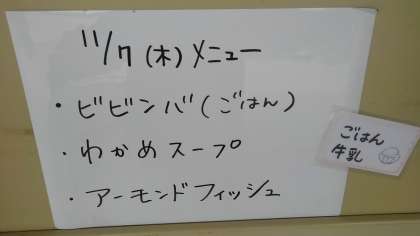 11/7 (木) メニュー
・ビビンバ(ごはん)
・わかめスープ
・アーモンドフィッシュ
ごはん
牛乳